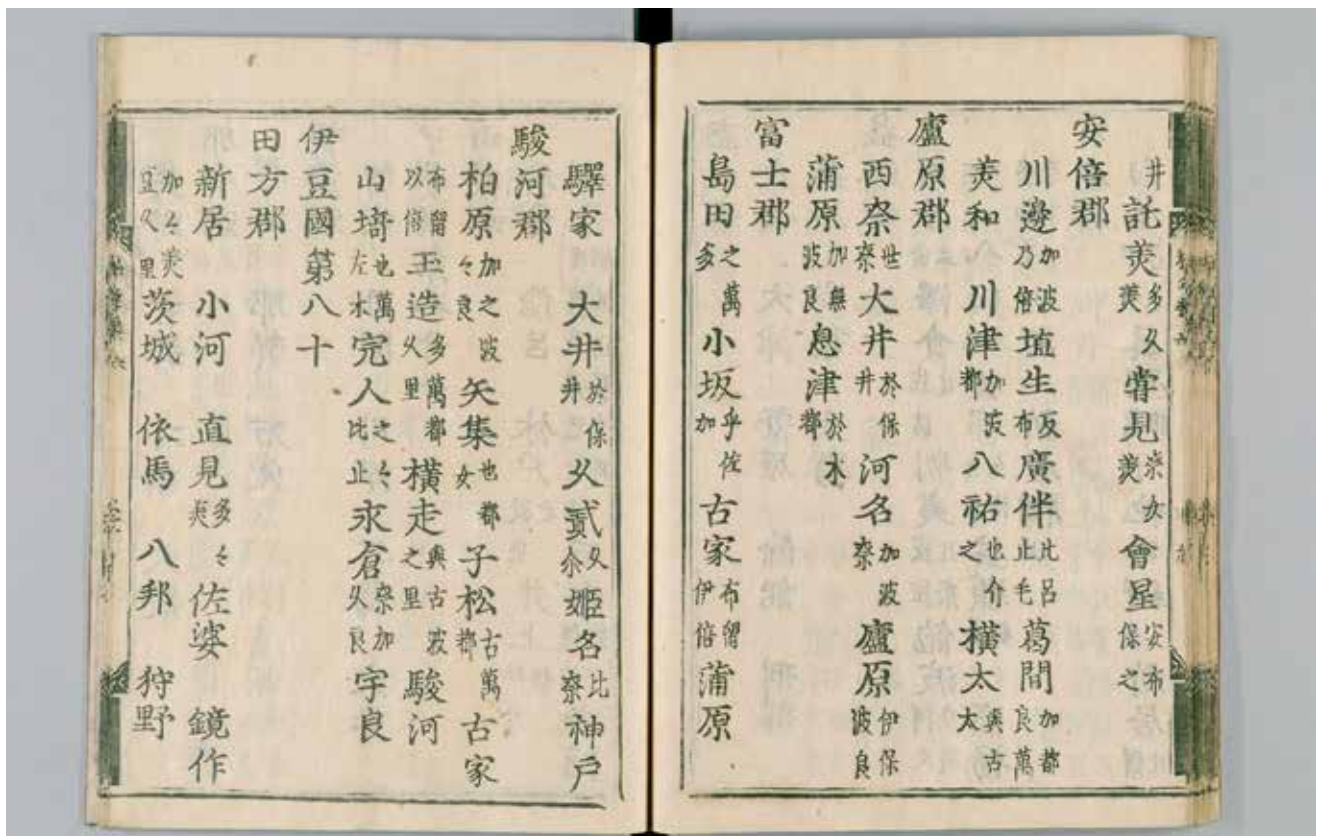 井託美多久美甞見奈女美會星安布保之
安倍郡
川邊加波乃倍埴生反布廣伴比呂止毛葛間加都良萬
美和 川津加波都八祐也介之横太与古太
廬原郡
西奈世奈大井於保井河名加波奈廬原伊保波良
蒲原加無波良息津於木都
富士郡
島田之萬多小坂乎佐加古家布留伊倍蒲原
驛家 大井於保井乆貳乆尓姬名比奈神戸
駿河郡
柏原加之波々良矢集也都女子松古萬都古家
布留以倍玉造多萬都久里横走與古波之里駿河
山埼也萬左木宍人之々比止永倉奈加久良宇良
伊豆國第八十
田方郡
新居 小河 直見多々美佐婆 鏡作
加々美豆久里茨城 依馬 八邦 狩野